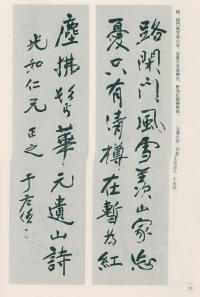 路閉門風雪羨山家忘
憂只有清樽在暫為紅
塵拂鬢華 元遺山詩
光如仁兄 正之 于右任
一六